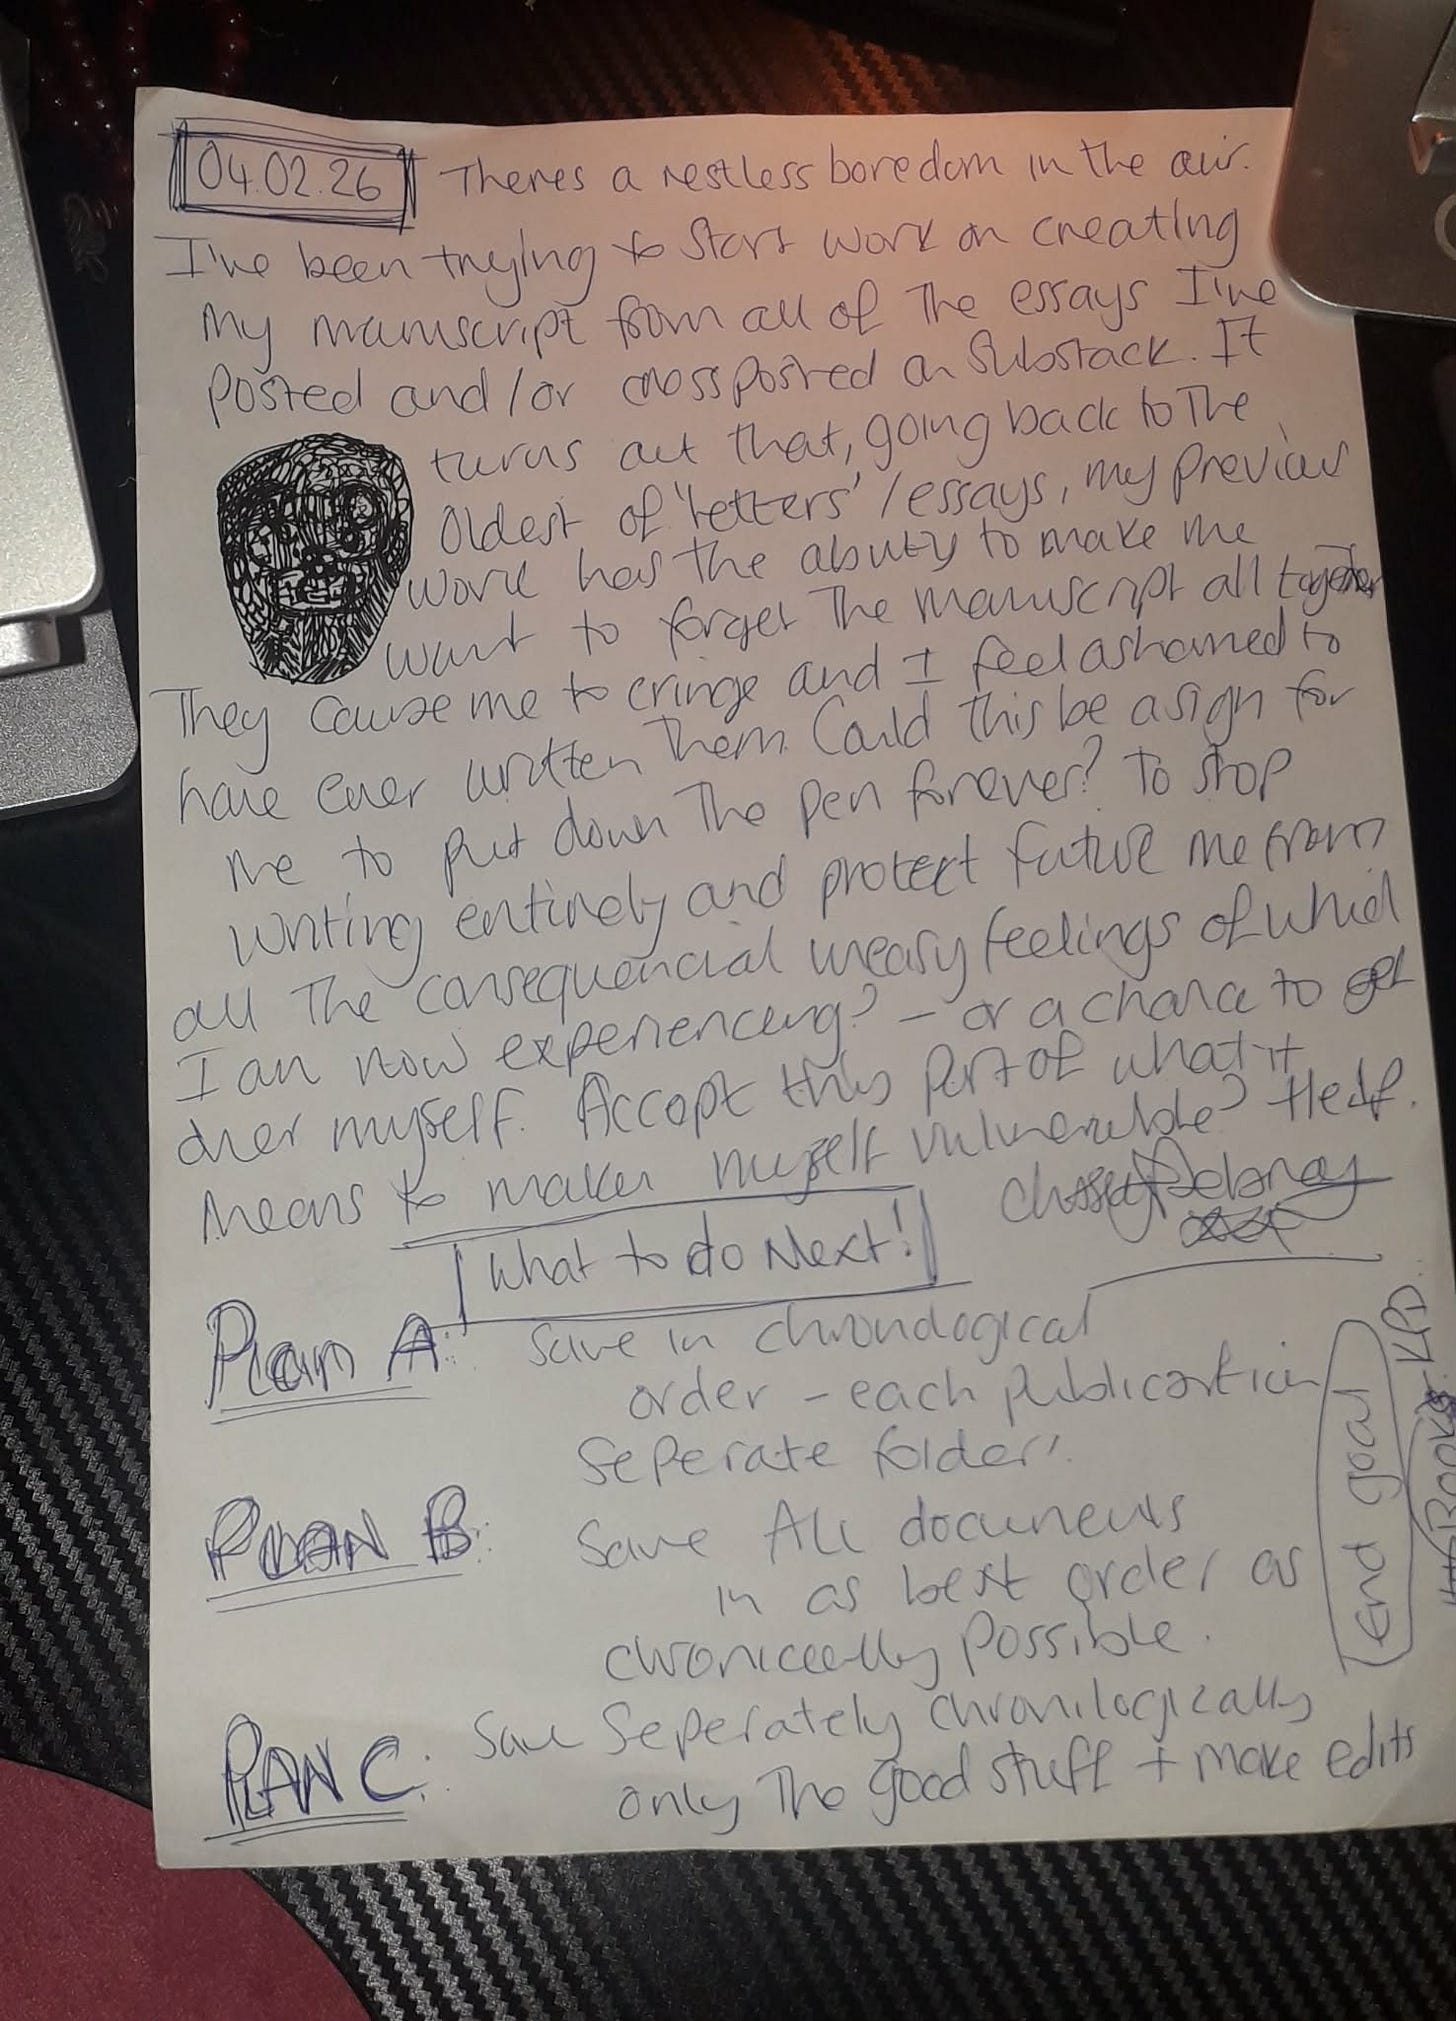 04.02.26 Theres a restless boredom in the air.
I've been trying to start work on creating
my manuscript from all of the essays I've
posted and/or crossposted on Substack. It
turns out that, going back to the
oldest of 'letters' / essays, my previous
work has the ability to make me
want to forget the manuscript all together
They cause me to cringe and I feel ashamed to
have ever written them. Could this be a sign for
me to put down the pen forever? To stop
writing entirely and protect future me from
all the consequencial uneasy feelings of which
I am now experiencing? - or a chance to get
over myself. Accept this part of what it
means to make myself vulnerable? Help.
What to do Next!
Plan A: Save in chronological
order - each publication
seperate folder!
PLAN B: Save ALL documents
in as best order as
chronically possible.
PLAN C: Save seperately chronilogically
only the good stuff + make edits
End goal
Books KDP